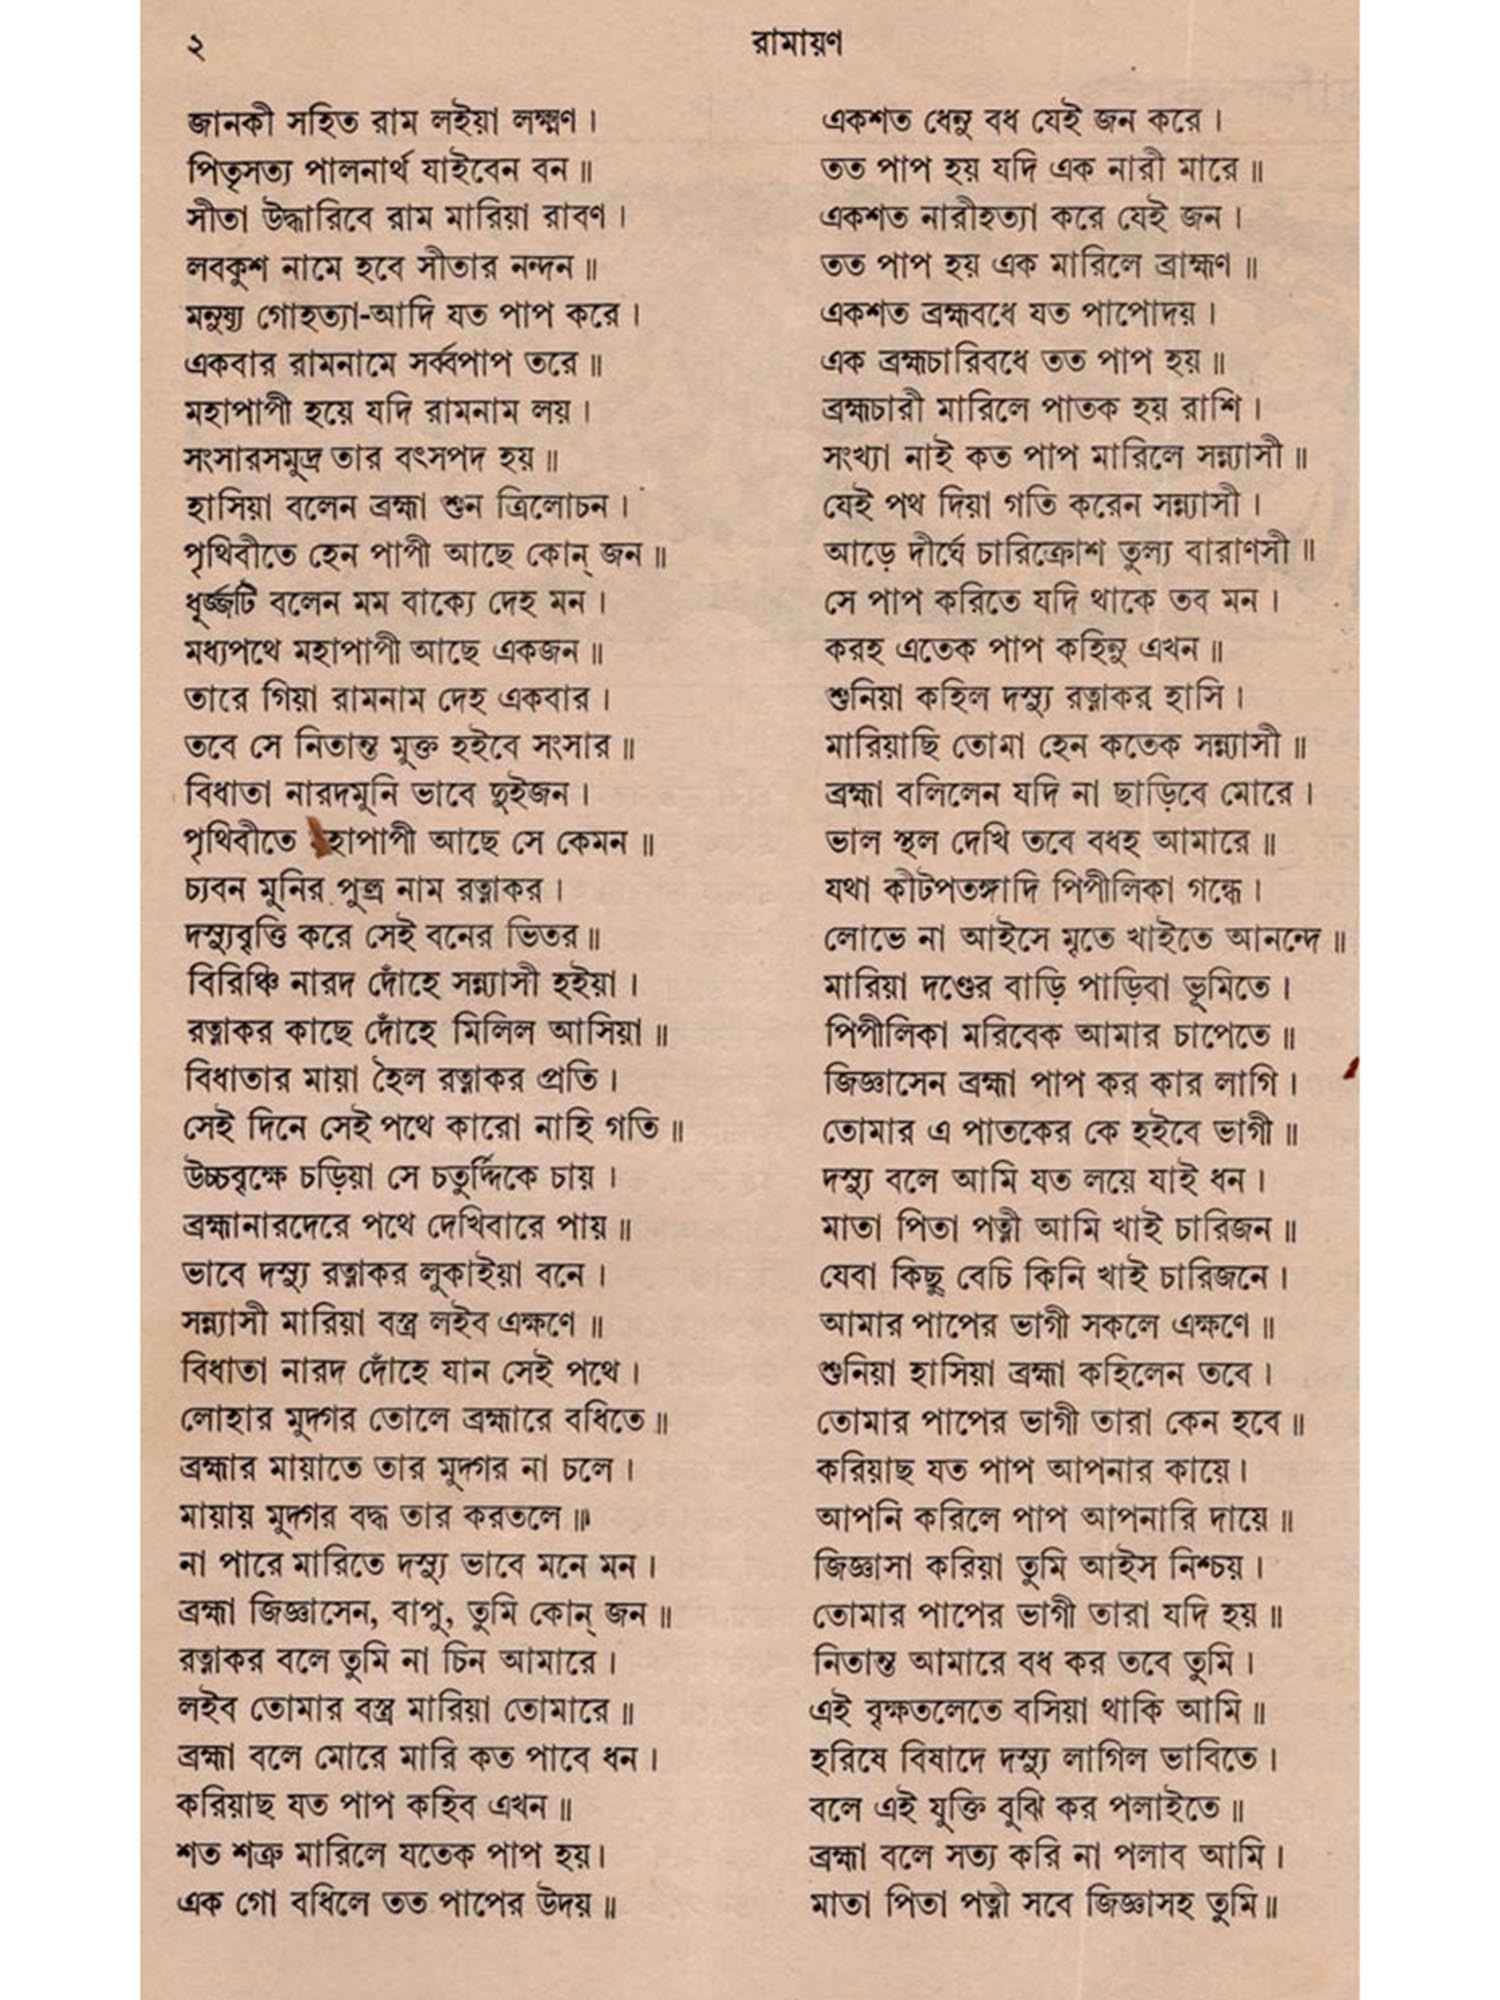 ২
রামায়ণ
জানকী সহিত রাম লইয়া লক্ষ্মণ ।
পিতৃসত্য পালনার্থ যাইবেন বন ॥
সীতা উদ্ধারিবে রাম মারিয়া রাবণ ।
লবকুশ নামে হবে সীতার নন্দন ॥
মনুষ্য গোহত্যা-আদি যত পাপ করে ।
একবার রামনামে সর্ব্বপাপ তরে ॥
মহাপাপী হয়ে যদি রামনাম লয় ।
সংসারসমুদ্র তার বৎসপদ হয় ॥
হাসিয়া বলেন ব্রহ্মা শুন ত্রিলোচন ।
পৃথিবীতে হেন পাপী আছে কোন্ জন ॥
ধূর্জ্জটি বলেন মম বাক্যে দেহ মন ।
মধ্যপথে মহাপাপী আছে একজন ॥
তারে গিয়া রামনাম দেহ একবার ।
তবে সে নিতান্ত মুক্ত হইবে সংসার ॥
বিধাতা নারদমুনি ভাবে দুইজন ।
পৃথিবীতে হাপাপী আছে সে কেমন ॥
চ্যবন মুনির পুত্র নাম রত্নাকর ।
দস্যুবৃত্তি করে সেই বনের ভিতর ॥
বিরিঞ্চি নারদ দোঁহে সন্ন্যাসী হইয়া ।
রত্নাকর কাছে দোঁহে মিলিল আসিয়া ॥
বিধাতার মায়া হৈল রত্নাকর প্রতি ।
সেই দিনে সেই পথে কারো নাহি গতি ॥
উচ্চবৃক্ষে চড়িয়া সে চতুর্দ্দিকে চায় ।
ব্রহ্মানারদেরে পথে দেখিবারে পায় ॥
ভাবে দস্যু রত্নাকর লুকাইয়া বনে ।
সন্ন্যাসী মারিয়া বস্ত্র লইব এক্ষণে ॥
বিধাতা নারদ দোঁহে যান সেই পথে ।
লোহার মুদ্গর তোলে ব্রহ্মারে বধিতে ॥
ব্রহ্মার মায়াতে তার মুদ্গর না চলে ।
মায়ায় মুদ্গর বদ্ধ তার করতলে ॥
না পারে মারিতে দস্যু ভাবে মনে মন ।
ব্রহ্মা জিজ্ঞাসেন, বাপু, তুমি কোন্ জন ॥
রত্নাকর বলে তুমি না চিন আমারে ।
লইব তোমার বস্ত্র মারিয়া তোমারে ॥
ব্রহ্মা বলে মোরে মারি কত পাবে ধন ।
করিয়াছ যত পাপ কহিব এখন ॥
শত শত্রু মারিলে যতেক পাপ হয় ।
এক গো বধিলে তত পাপের উদয় ॥
একশত ধেনু বধ যেই জন করে ।
তত পাপ হয় যদি এক নারী মারে ॥
একশত নারীহত্যা করে যেই জন ।
তত পাপ হয় এক মারিলে ব্রাহ্মণ ॥
একশত ব্রহ্মবধে যত পাপোদয় ।
এক ব্রহ্মচারিবধে তত পাপ হয় ॥
ব্রহ্মচারী মারিলে পাতক হয় রাশি ।
সংখ্যা নাই কত পাপ মারিলে সন্ন্যাসী ॥
যেই পথ দিয়া গতি করেন সন্ন্যাসী ।
আড়ে দীর্ঘে চারিক্রোশ তুল্য বারাণসী ॥
সে পাপ করিতে যদি থাকে তব মন ।
করহ এতেক পাপ কহিনু এখন ॥
শুনিয়া কহিল দস্যু রত্নাকর হাসি ।
মারিয়াছি তোমা হেন কতেক সন্ন্যাসী ॥
ব্রহ্মা বলিলেন যদি না ছাড়িবে মোরে ।
ভাল স্থল দেখি তবে বধহ আমারে ॥
যথা কীটপতঙ্গাদি পিপীলিকা গন্ধে ।
লোভে না আইসে মৃতে খাইতে আনন্দে ॥
মারিয়া দণ্ডের বাড়ি পাড়িবা ভূমিতে ।
পিপীলিকা মরিবেক আমার চাপেতে ॥
জিজ্ঞাসেন ব্রহ্মা পাপ কর কার লাগি ।
তোমার এ পাতকের কে হইবে ভাগী ॥
দস্যু বলে আমি যত লয়ে যাই ধন ।
মাতা পিতা পত্নী আমি খাই চারিজন ॥
যেবা কিছু বেচি কিনি খাই চারিজনে ।
আমার পাপের ভাগী সকলে এক্ষণে ॥
শুনিয়া হাসিয়া ব্রহ্মা কহিলেন তবে ।
তোমার পাপের ভাগী তারা কেন হবে ॥
করিয়াছ যত পাপ আপনার কায়ে ।
আপনি করিলে পাপ আপনারি দায়ে ॥
জিজ্ঞাসা করিয়া তুমি আইস নিশ্চয় ।
তোমার পাপের ভাগী তারা যদি হয় ॥
নিতান্ত আমারে বধ কর তবে তুমি ।
এই বৃক্ষতলেতে বসিয়া থাকি আমি ॥
হরিষে বিষাদে দস্যু লাগিল ভাবিতে ।
বলে এই যুক্তি বুঝি কর পলাইতে ॥
ব্রহ্মা বলে সত্য করি না পলাব আমি ।
মাতা পিতা পত্নী সবে জিজ্ঞাসহ তুমি ॥